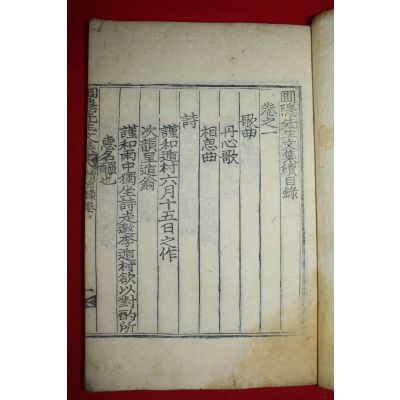 圃隱先生文集續目錄
卷之一
歌曲
丹心歌
相思曲
詩
謹和遁村六月十五日之作
次韻呈遁翁
謹和雨中獨坐詩走邀李遁村欲以對酌所
惠名醞也
圃隱先生文集
續目錄卷